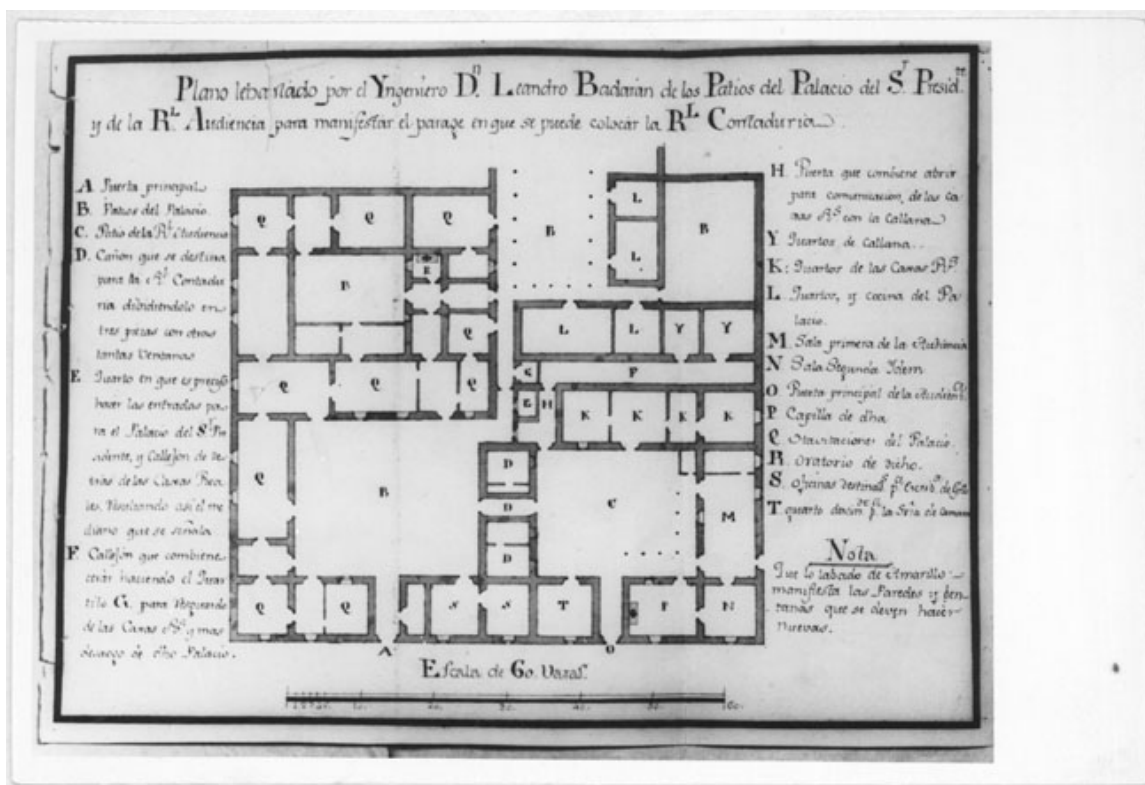 Plano lebantado por el Yngeniero Dn. Leandro Badaran de los Patios del Palacio del Sr. Presidte.
y de la Rl. Audiencia para manifestar el parage en que se puede colocar la Rl Contaduria.
A Puerta principal
B. Patios del Palacio.
C. Patio de la Rl. Audiencia
D. Cañon que se destina
para la Rl. Contadu
ria dibidiendolo en
tres piezas con otras
tantas Ventanas
E Quarto en que es preciso
hacer las entradas pa
ra el Palacio del Sr. Pre
sidente, y Callejon de de
tras de las Caxas Rea
les, Resultando asi el me
diano que se señala
F. Callejon que combiene
cerrar haciendo el Quar
tito G. para Resguardo
de las Caxas Rs. y mas
desaogo de dho Palacio.
H. Puerta que combiene abrir
para comunicacion de las ca
xas Rs. con la Callana
Y Quartos de Callana
K: Quartos de las Caxas Rs.
L Quartos, y cocina del Pa
lacio.
M. Sala primera de la Audiencia
N Sala Segunda Ydem
O Puerta principal de la Audienca.
P Capilla de dha
Q Havitaciones del Palacio.
R. Oratorio de dicho.
S. Oficinas destinads. pa. Escribs. de
T quarto destin. pa. la Sria. de Camara
Nota
Que lo labado de Amarillo
manifiesta las Paredes y ben
tanas que se deven hacer
nuevas.
Q Q Q L B B
B R L
Q L L Y Y
Q Q Q G F
G H K K K K
Q B D C M
D
D
Q Q S S T P N
A O
Escala de 60. Varas.
10. 20. 30. 40. 50. 60.